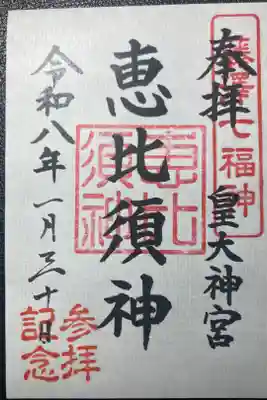 藤澤七福神
奉拝
皇大神宮
恵比須神
恵比
須神
令和八年一月三十日
参拝
記念